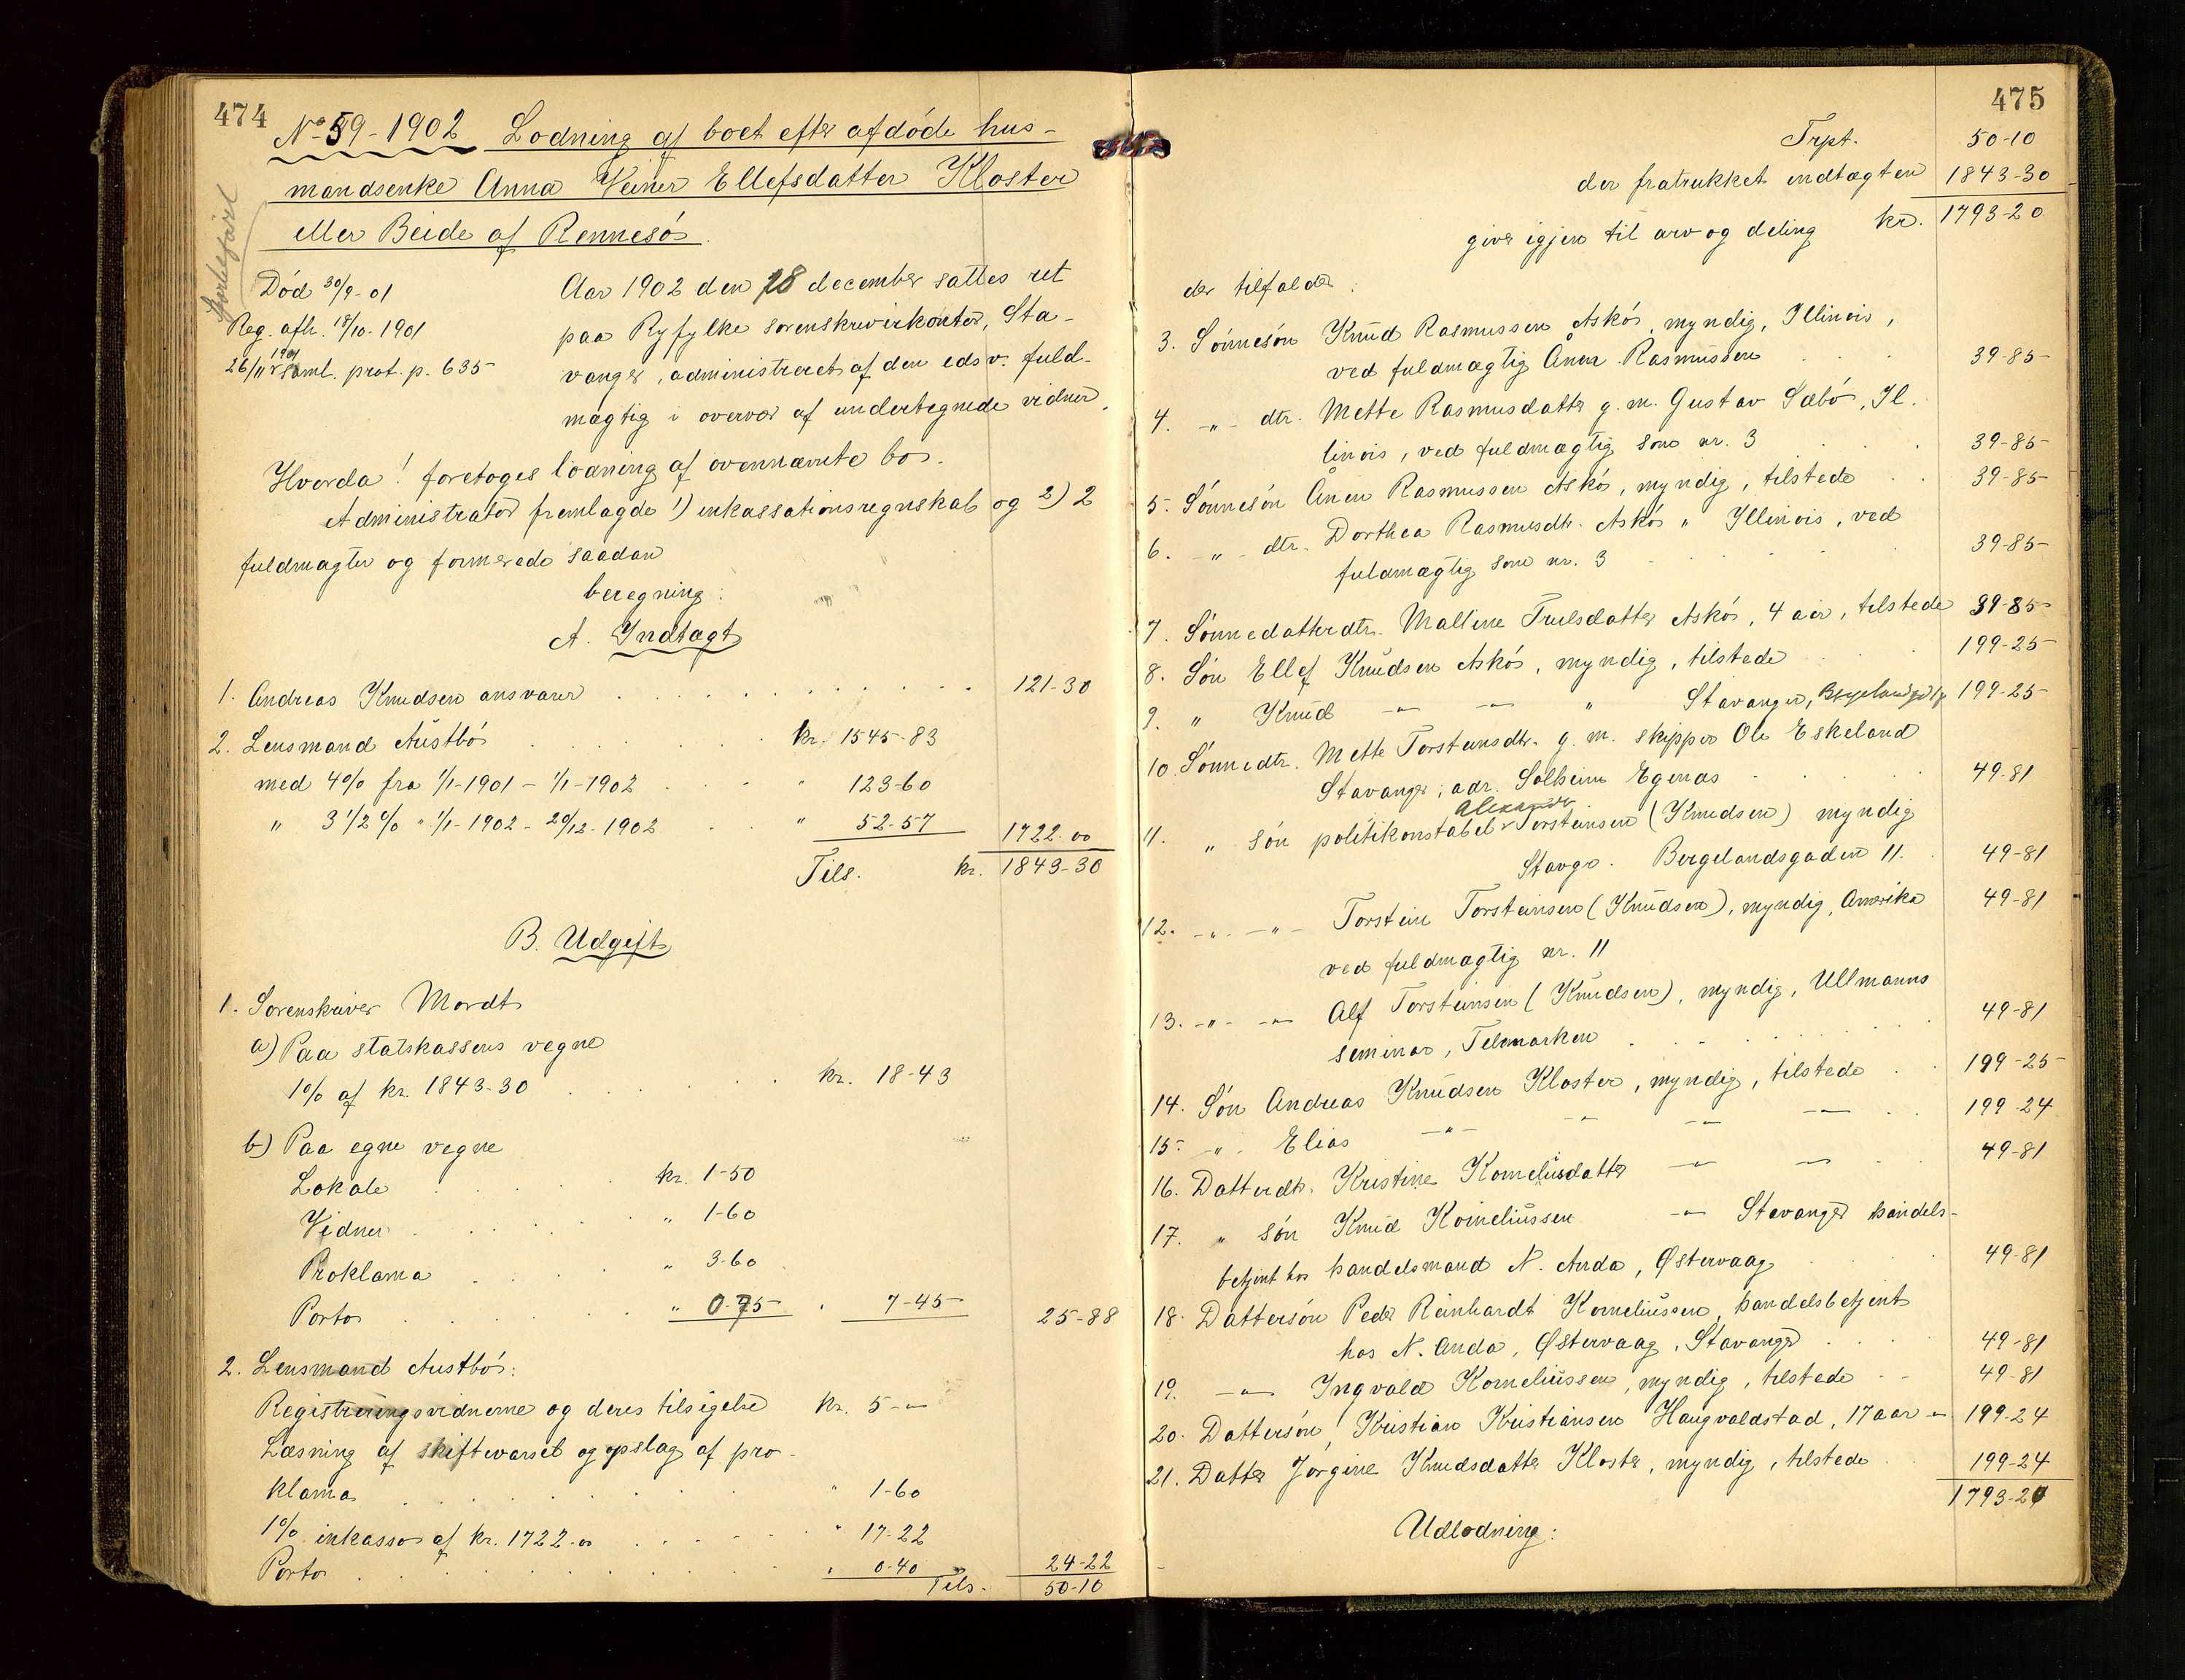 474
No 59-1902 Lodning af boet efter afdöde hus-
mandsenke Anna Veiner Ellefsdatter Kloster
eller Beide af Rennesö.
Död 30/9-01
Reg. afh. 18/10-1901
26/11 1901 saml. prot. p. 635
Aar 1902 den 18 december sattes ret
paa Ryfylke sorenskriverkontor, Sta-
vanger, administreret af den edsv. fuld-
mægtig i overvær af undertegnede vidner.
Hvorda! foretoges lodning af ovennævnte bo.
Administrator fremlagde 1) inkassationsregnskab og 2) 2
fuldmagter og formerede saadan
beregning:
A. Indtægt
1. Andreas Knudsen ansvarer 121-30
2. Lensmand Austbö kr. 1545-83
med 4% fra 1/1-1901 - 1/1-1902 " 123-60
" 3 1/2 % " 1/1-1902 - 20/12-1902 " 52-57 1722.00
Tils. kr. 1843-30
B. Udgift
1. Sorenskriver Mordt
a) Paa statskassens vegne
1% af kr. 1843-30 kr. 18-43
b) Paa egne vegne
Lokale kr. 1-50
Vidner " 1-60
Proklama " 3-60
Porto " 0-75 " 7-45 25-88
2. Lensmand Austbö:
Registreringsvidnerne og deres tilsigelse kr. 5-"-
Læsning af skiftevarsel og opslag af pro-
klama " 1-60
1% inkasso af kr. 1722.00 " 17-22
Porto " 0-40 24-22
Tils. 50-10
475
Trpt. 50-10
der fratrukket indtægten 1843-30
giver igjen til arv og deling kr. 1793-20
der tilfalder:
3. Sönnesön Knud Rasmussen Askö, myndig, Illinois,
ved fuldmægtig Ånen Rasmussen 39-85
4. -"- dtr. Mette Rasmusdatter g. m. Gustav Sæbö, Il.
linois, ved fuldmægtig som nr. 3 39-85
5. Sönnesön Ånen Rasmussen Askö, myndig, tilstede 39-85
6. -"- dtr. Dorthea Rasmusdtr. Askö " Illinois, ved
fuldmægtig som nr. 3 39-85
7. Sönnedatterdtr. Malline Truelsdatter Askö, 4 aar, tilstede 39-85
8. Sön Ellef Knudsen Askö, myndig, tilstede 199-25
9. " Knud -"- -"- " Stavanger, 199-25
10. Sönnedtr. Mette Torsteinsdtr. g. m. skipper Ole Eskeland
Stavanger, adr. Solheim Egenæs 49-81
Alexander
11. " sön politikonstabel v Torsteinsen (Knudsen) myndig
Stavgr. Bergelandsgaden 11. 49-81
12. -"- -"- Torstein Torsteinsen (Knudsen), myndig, Amerika 49-81
ved fuldmægtig nr. 11
13. -"- -"- Alf Torsteinsen (Knudsen), myndig, Ullmanns
seminar, Telemarken 49-81
14. Sön Andreas Knudsen Kloster, myndig, tilstede 199-25
15. -"- Elias -"- -"- -"- -"- 199-24
16. Datterdtr. Kristine Korneliusdatter -"- -"- 49-81
17. " sön Knud Korneliussen -"- Stavanger handels-
betjent hos handelsmand N. Anda, Østervaag 49-81
18. Dattersön Peder Reinhardt Korneliussen, handelsbetjent
hos N. Anda, Østervaag, Stavanger 49-81
19. -"- Ingvald Korneliussen, myndig, tilstede 49-81
20. Dattersön Kristian Kristiansen Haugvaldstad, 17 aar -"- 199-24
21. Datter Jörgine Knudsdatter Kloster, myndig, tilstede 199-24
1793-20
Udlodning: